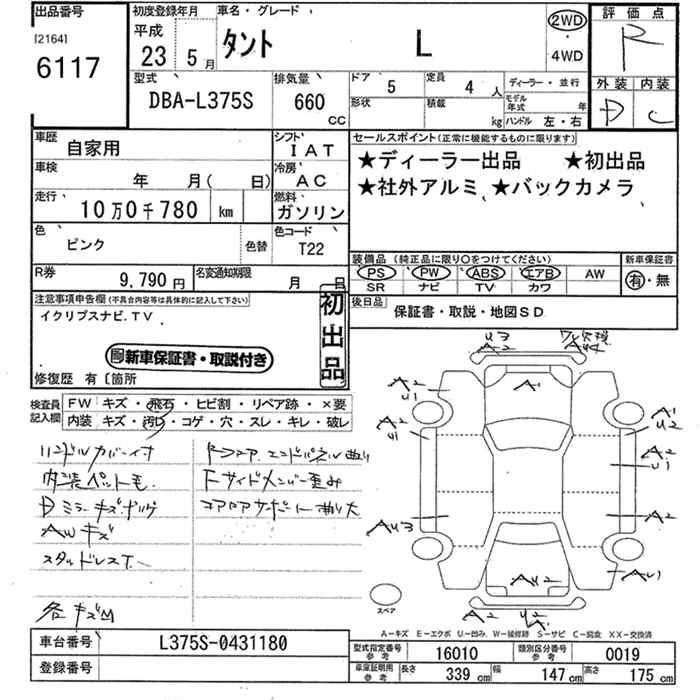 出品番号
[2164]
6117
初度登録年月
平成
23 5月
車名・グレード
タント L
2WD
・
4WD
評価点
R
外装 内装
D C
型式
DBA-L375S
排気量
660
CC
ドア
5
定員
4 人
形状
積載
kg
ディーラー・並行
モデル年式 年
ハンドル 左・右
車歴
自家用
シフト
IAT
車検
年 月( 日)
冷房
AC
走行
10万0千780 km
燃料
ガソリン
色
ピンク
色替
色コード
T22
R券
9,790円
名変通知期限
月 日
セールスポイント(正常に機能するものに限ります)
★ディーラー出品 ★初出品
★社外アルミ、★バックカメラ
装備品(純正品に限り○をつけてください)
PS PW ABS エアB AW
SR ナビ TV カワ
新車保証書
有・無
後日品
保証書・取説・地図SD
注意事項申告欄(不具合内容等は具体的に記入して下さい)
イクリプスナビ.TV
新車保証書・取説付き
初出品
修復歴 有〔箇所
検査員記入欄
FW キズ・飛石・ヒビ割・リペア跡・×要
内装 キズ・汚れ・コゲ・穴・スレ・キレ・破レ
ハンドルカバー付
内装ペット毛
Dミラーキズ
AWキズ
スタッドレスT.
各キズM
Rフロア エンドパネル曲り
Fサイドメンバー歪み
コアロアサポート曲り大
U3
A2
A1
A2
U1
A2
U1
A1
U2
A2
U1
AU3
A2
AU2
AU1
A2
U2
A2
スペア
A-キズ E-エクボ U-凹み、W-補修跡 S-サビ C-腐食 XX-交換済
車台番号
L375S-0431180
登録番号
型式指定番号
参考
16010
類別区分番号
参考
0019
車家証明用
参考
長さ
339 cm
幅
147 cm
高さ
175 cm